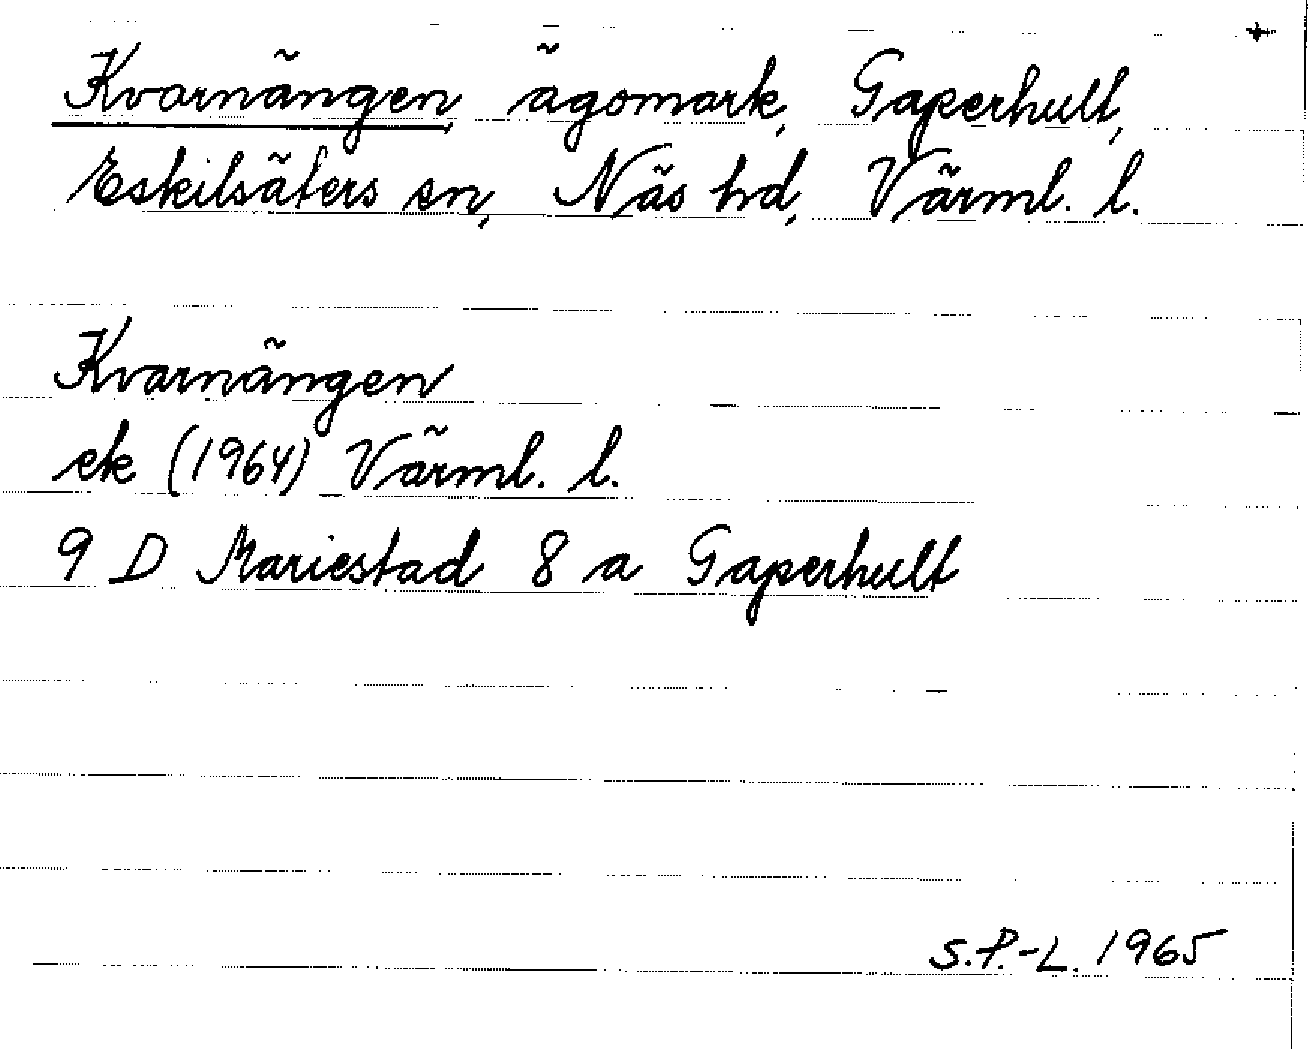 +
Kvarnängen, ägomark, Gaperhult,
Eskilsäters sn, Näs hd, Värml. l.
Kvarnängen
ek (1964) Värml. l.
9 D Mariestad 8 a Gaperhult
S.P.-L. 1965